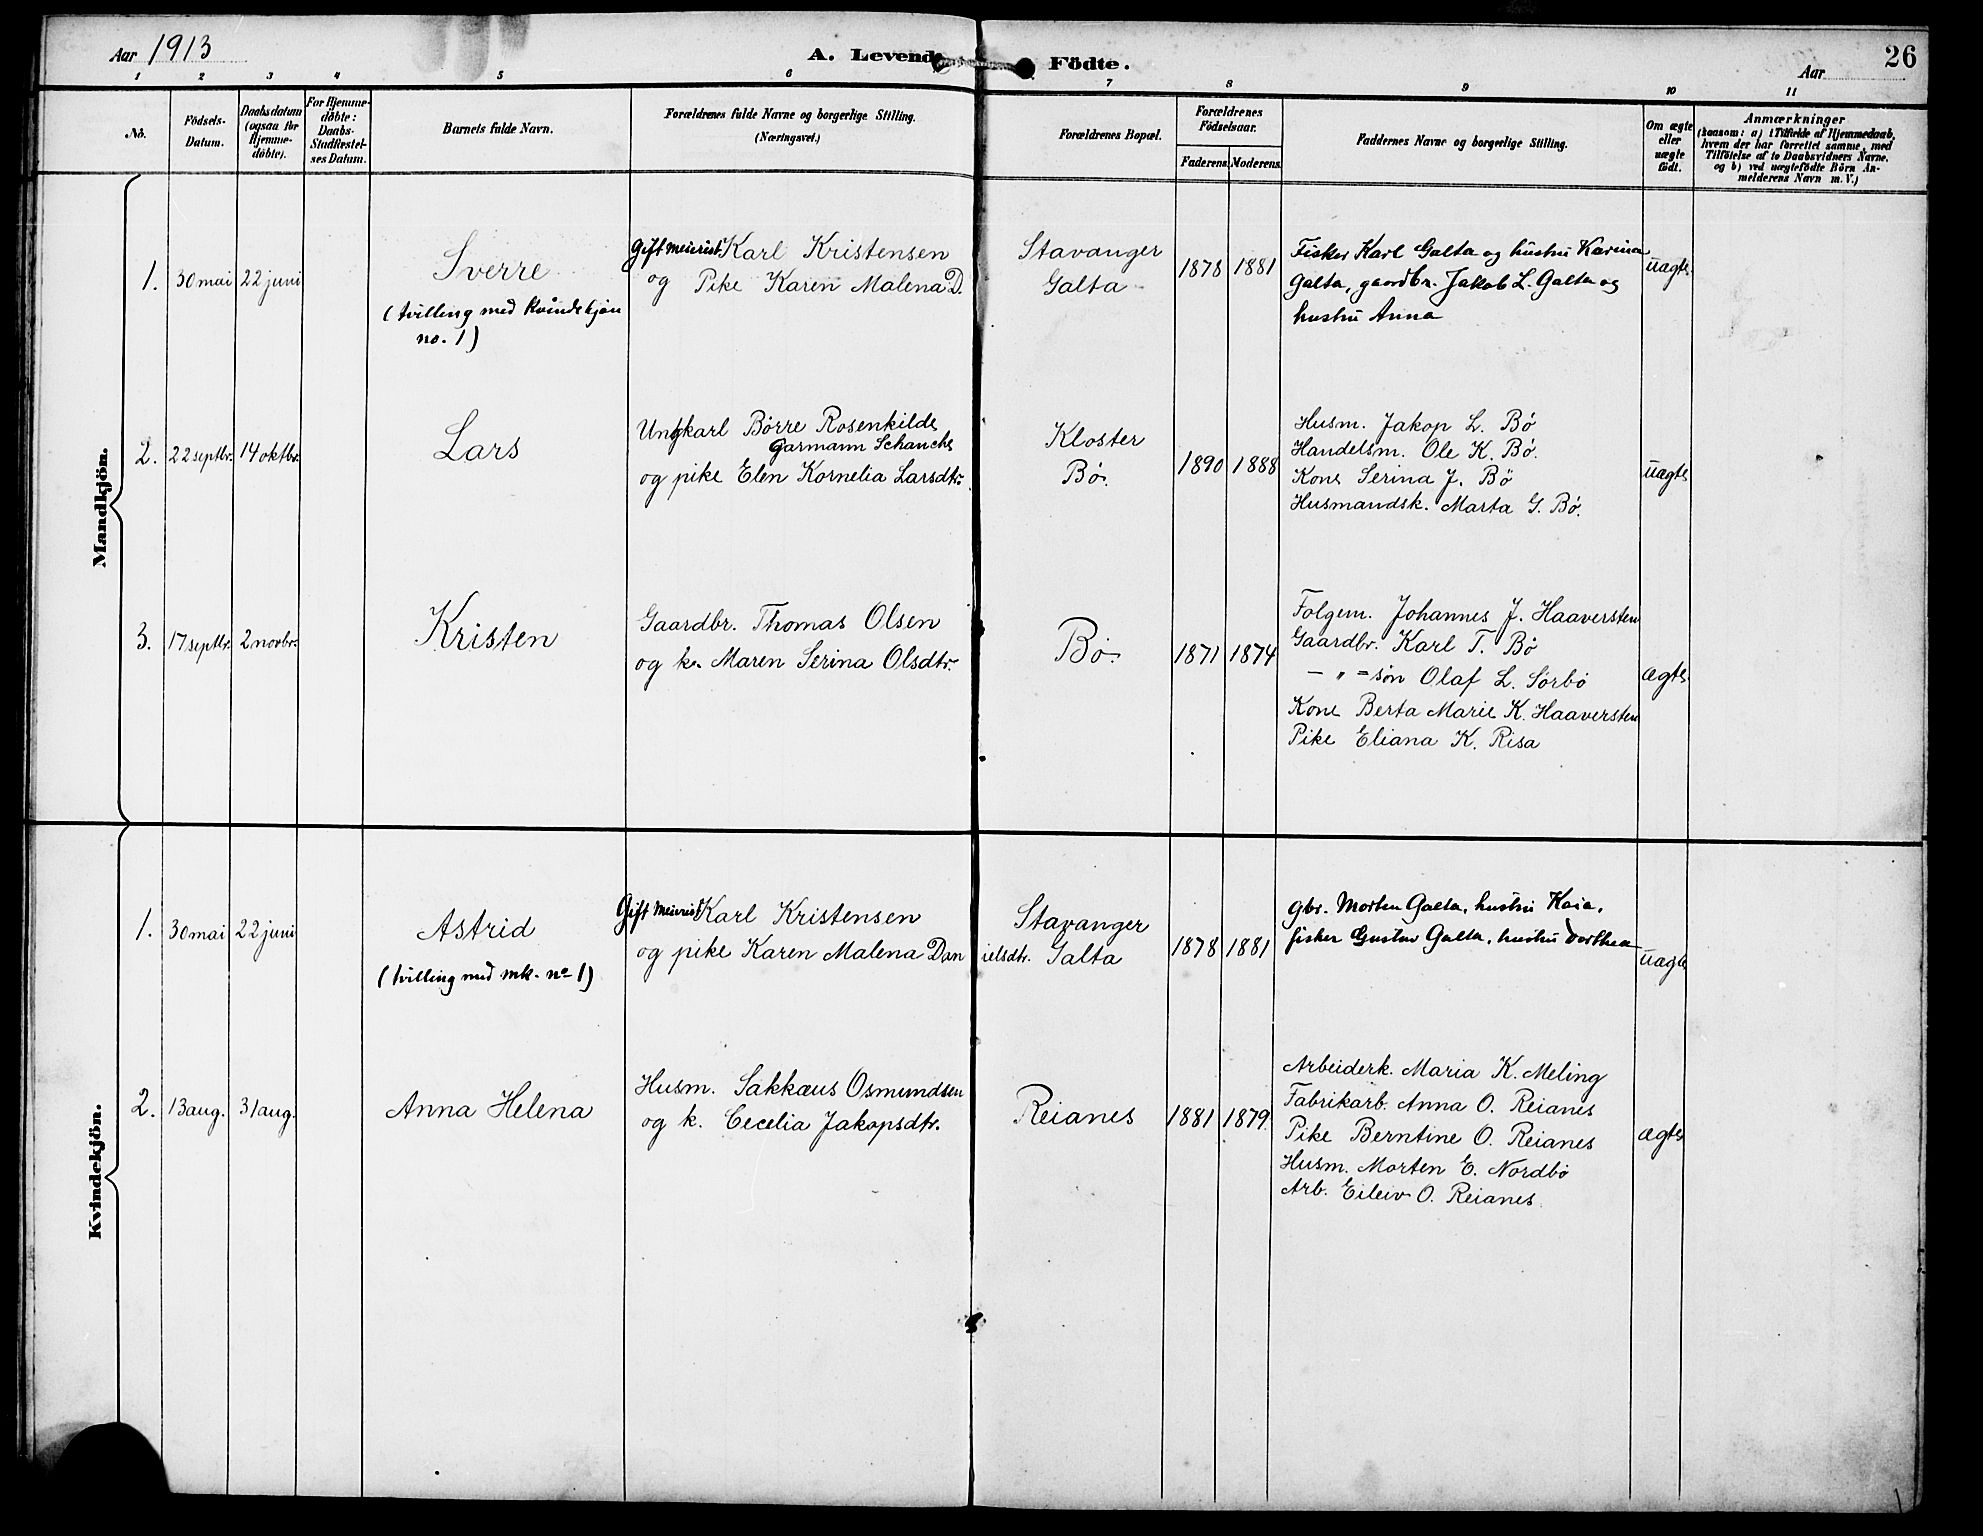 Aar 1913
A. Levende
Födte.
Aar
26
1 2 3 4 5 6 7 8 9 10 11
No.
Födsels-
Datum.
Daabsdatum
(ogsaa for
Hjemme-
döbte).
For Hjemme-
döbte:
Daabs-
Stadfæstel-
ses Datum.
Barnets fulde Navn.
Forældrenes fulde Navne og borgerlige Stilling.
(Næringsvei.)
Forældrenes Bopæl.
Forældrenes
Födselsaar.
Faderens. Moderens.
Faddernes Navne og borgerlige Stilling.
Om ægte
eller
uægte
födt.
Anmærkninger
(saasom: a) i Tilfælde af Hjemmedaab,
hvem der har forrettet samme, med
Tilföielse af to Daabsvidners Navne,
og b) ved uægtefödte Börn An-
melderens Navn m. V.)
Mandkjön.
1. 30 mai 22 juni
Sverre
(tvilling med Kvindekjøn
no. 1)
Gift meierist Karl Kristensen
og Pike Karen Malena D.
Stavanger
Galta
1878 1881
Fisker Karl Galta og hustru Karina
Galta, gaardbr. Jakob L. Galta og
hustru Anna
uagte.
2. 22 septbr. 14 oktbr.
Lars
Ungkarl Børre Rosenkilde
Garmann Schanche
og pike Elen Kornelia Larsdtr.
Kloster
Bø.
1890 1888
Husm. Jakop L. Bø
Handelsm. Ole K. Bø.
Kone Serina J. Bø
Husmandsk. Marta G. Bø.
uagte
3. 17 septbr. 2 novbr.
Kristen
Gaardbr. Thomas Olsen
og k. Maren Serina Olsdtr.
Bø.
1871 1874
Folgem. Johannes J. Haaversten
Gaardbr. Karl T. Bø
— " = søn Olaf L. Sørbø
Kone Berta Marie K. Haaversten
Pike Eliana K. Risa
ægte.
Kvindekjön.
1. 30 mai 22 juni
Astrid
(tvilling med mk. no 1)
Gift meierist Karl Kristensen
og pike Karen Malena Dan
ielsdtr.
Stavanger
Galta
1878 1881
gbr. Morten Galta, hustru Kaia,
fisker Gustav Galta, hustru Dorthea
uagte
2. 13 aug. 31 aug.
Anna Helena
Husm. Sakkæus Osmundsen
og k. Cecelia Jakopsdtr.
Reianes
1881 1879.
Arbeiderk. Maria K. Meling
Fabrikarb. Anna O. Reianes
Pike Berntine O. Reianes
Husm. Morten E. Nordbø
Arb. Eileiv O. Reianes.
ægte